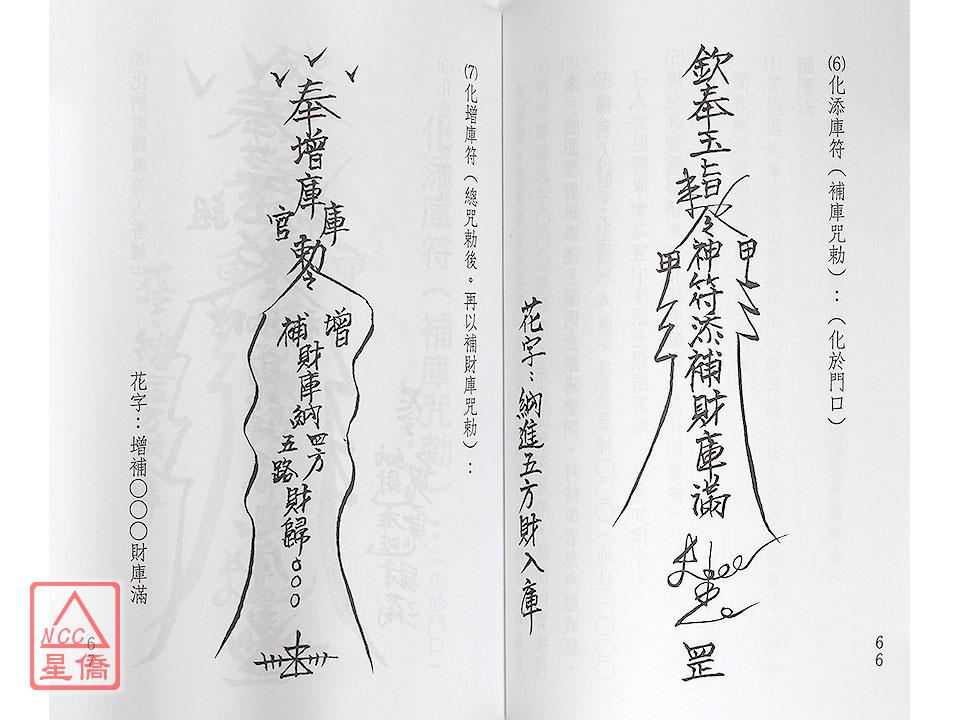 ⑹化添庫符（補庫咒勅）：（化於門口）
欽奉玉旨
令神符添補財庫滿
甲
甲
罡
花字：納進五方財入庫
66
⑺化增庫符（總咒勅後。再以補財庫咒勅）：
奉增庫
庫
官
勅令
增
補
財庫納
四方
五路
財歸○○○
花字：增補○○○財庫滿
67
NCC
星僑